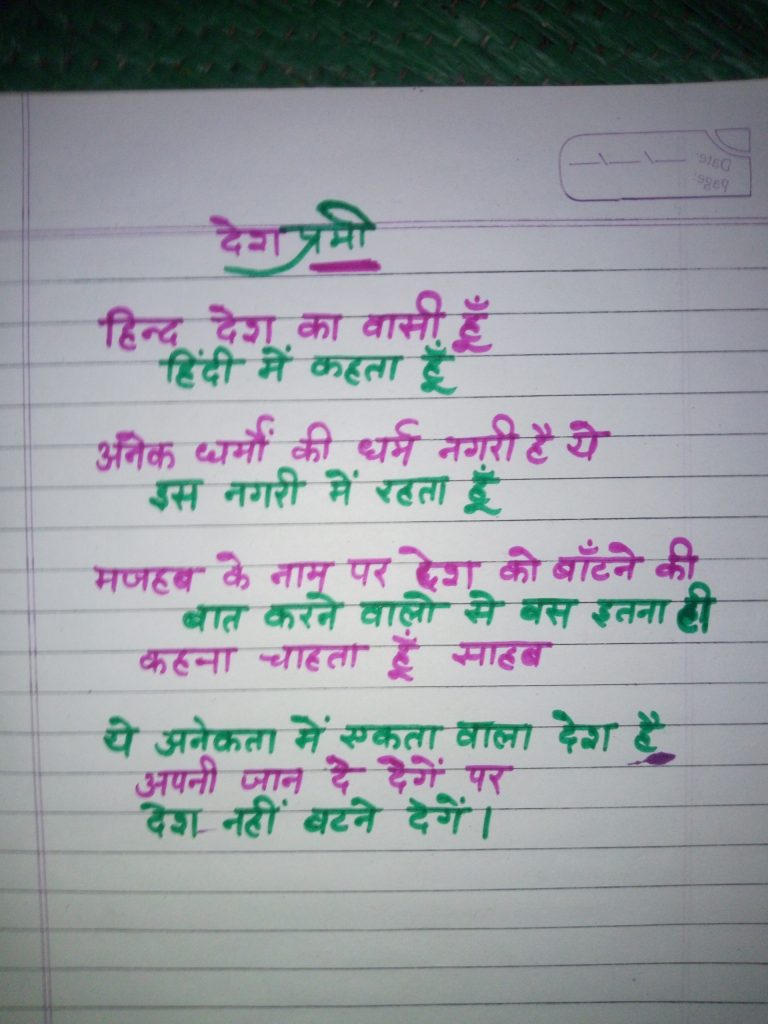 Date:
Page:
देश प्रेमी
हिन्द देश का वासी हूँ
हिंदी में कहता हूँ
अनेक धर्मों की धर्म नगरी है ये
इस नगरी में रहता हूँ
मजहब के नाम पर देश को बाँटने की
बात करने वालो से बस इतना ही
कहना चाहता हूँ साहब
ये अनेकता में एकता वाला देश है
अपनी जान दे देगें पर
देश नहीं बटने देगें।